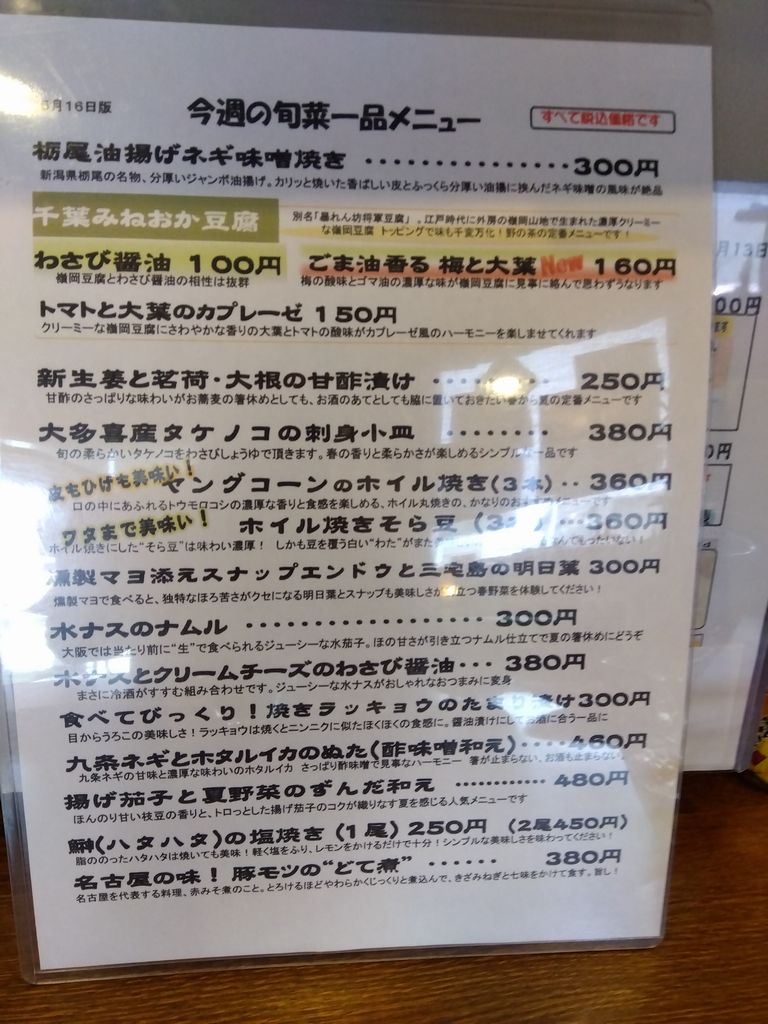 月16日版
今週の旬菜一品メニュー
すべて税込価格です
栃尾油揚げネギ味噌焼き ・・・・・・・・・・・・・・・300円
新潟県栃尾の名物、分厚いジャンボ油揚げ。カリッと焼いた香ばしい皮とふっくら分厚い油揚に挟んだネギ味噌の風味が絶品
千葉みねおか豆腐
別名「暴れん坊将軍豆腐」。江戸時代に外房の嶺岡山地で生まれた濃厚クリーミー
な嶺岡豆腐 トッピングで味も千変万化!野の茶の定番メニューです!
わさび醤油 100円
嶺岡豆腐とわさび醤油の相性は抜群
ごま油香る 梅と大葉 New 160円
梅の酸味とゴマ油の濃厚な味が嶺岡豆腐に見事に絡んで思わずうなります
トマトと大葉のカプレーゼ 150円
クリーミーな嶺岡豆腐にさわやかな香りの大葉とトマトの酸味がカプレーゼ風のハーモニーを楽しませてくれます
新生姜と茗荷・大根の甘酢漬け ・・・・・・・・・ 250円
甘酢のさっぱりな味わいがお蕎麦の箸休めとしても、お酒のあてとしても脇に置いておきたい春から夏の定番メニューです
大多喜産タケノコの刺身小皿 ・・・・・・・・ 380円
旬の柔らかいタケノコをわさびしょうゆで頂きます。春の香りと柔らかさが楽しめるシンプルな一品です
皮もひげも美味い!
ヤングコーンのホイル焼き(3本)・・360円
口の中にあふれるトウモロコシの濃厚な香りと食感を楽しめる、ホイル丸焼きの、かなりのおすすめメニューです
ワタまで美味い!
ホイル焼きそら豆 (3本)・・360円
ホイル焼きにした“そら豆”は味わい濃厚! しかも豆を覆う白い“わた”がまた
燻製マヨ添えスナップエンドウと三宅島の明日葉 300円
燻製マヨで食べると、独特なほろ苦さがクセになる明日葉とスナップも美味しさが 立つ春野菜を体験してください!
水ナスのナムル ・・・・・・・・・・・・・・・・・・ 300円
大阪では当たり前に“生”で食べられるジューシーな水茄子。ほの甘さが引き立つナムル仕立てで夏の箸休めにどうぞ
水ナスとクリームチーズのわさび醤油・・・ 380円
まさに冷酒がすすむ組み合わせです。ジューシーな水ナスがおしゃれなおつまみに変身
食べてびっくり!焼きラッキョウのたまり漬け300円
目からうろこの美味しさ!ラッキョウは焼くとニンニクに似たほくほくの食感に。醤油漬けにしてお酒に合う一品に
九条ネギとホタルイカのぬた(酢味噌和え)・・・・460円
九条ネギの甘味と濃厚な味わいのホタルイカ さっぱり酢味噌で見事なハーモニー 箸が止まらない、お酒も止まらない
揚げ茄子と夏野菜のずんだ和え ・・・・・・・・・・・・ 480円
ほんのり甘い枝豆の香りと、トロっとした揚げ茄子のコクが織りなす夏を感じる人気メニューです
鰰(ハタハタ)の塩焼き (1尾) 250円 (2尾450円)
脂ののったハタハタは焼いても美味!軽く塩をふり、レモンをかけるだけで十分!シンプルな美味しさを味わってください!
名古屋の味! 豚モツの“どて煮” ・・・・・・ 380円
名古屋を代表する料理、赤みそ煮のこと。とろけるほどやわらかくじっくりと煮込んで、きざみねぎと七味をかけて食す。旨し!
月13日
00円
0円